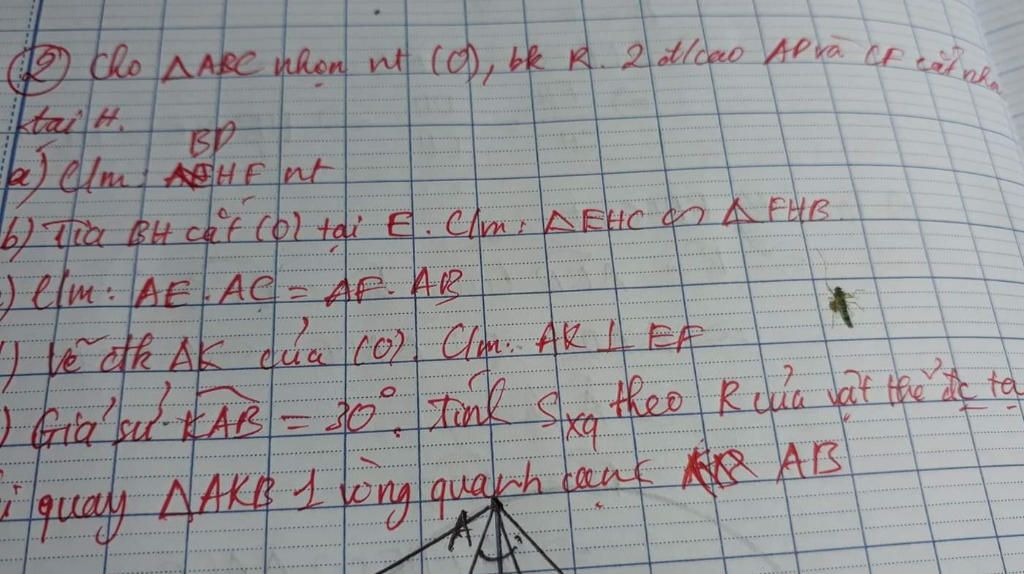 2) Cho △ABC nhọn nt (O), bk R. 2 đ/cao AD và CF cắt nha
tại H.
BD
a) C/m: HF nt
b) Tia BH cắt (O) tại E. C/m: △EHC ∽ △FHB
) C/m: AE.AC = AF.AB
) Vẽ đk AK của (O). C/m: AK ⊥ EF
) Giả sử KAB = 30°. Tính Sxq theo R của vật thể đc tạ
i quay △AKB 1 vòng quanh cạnh AB
A